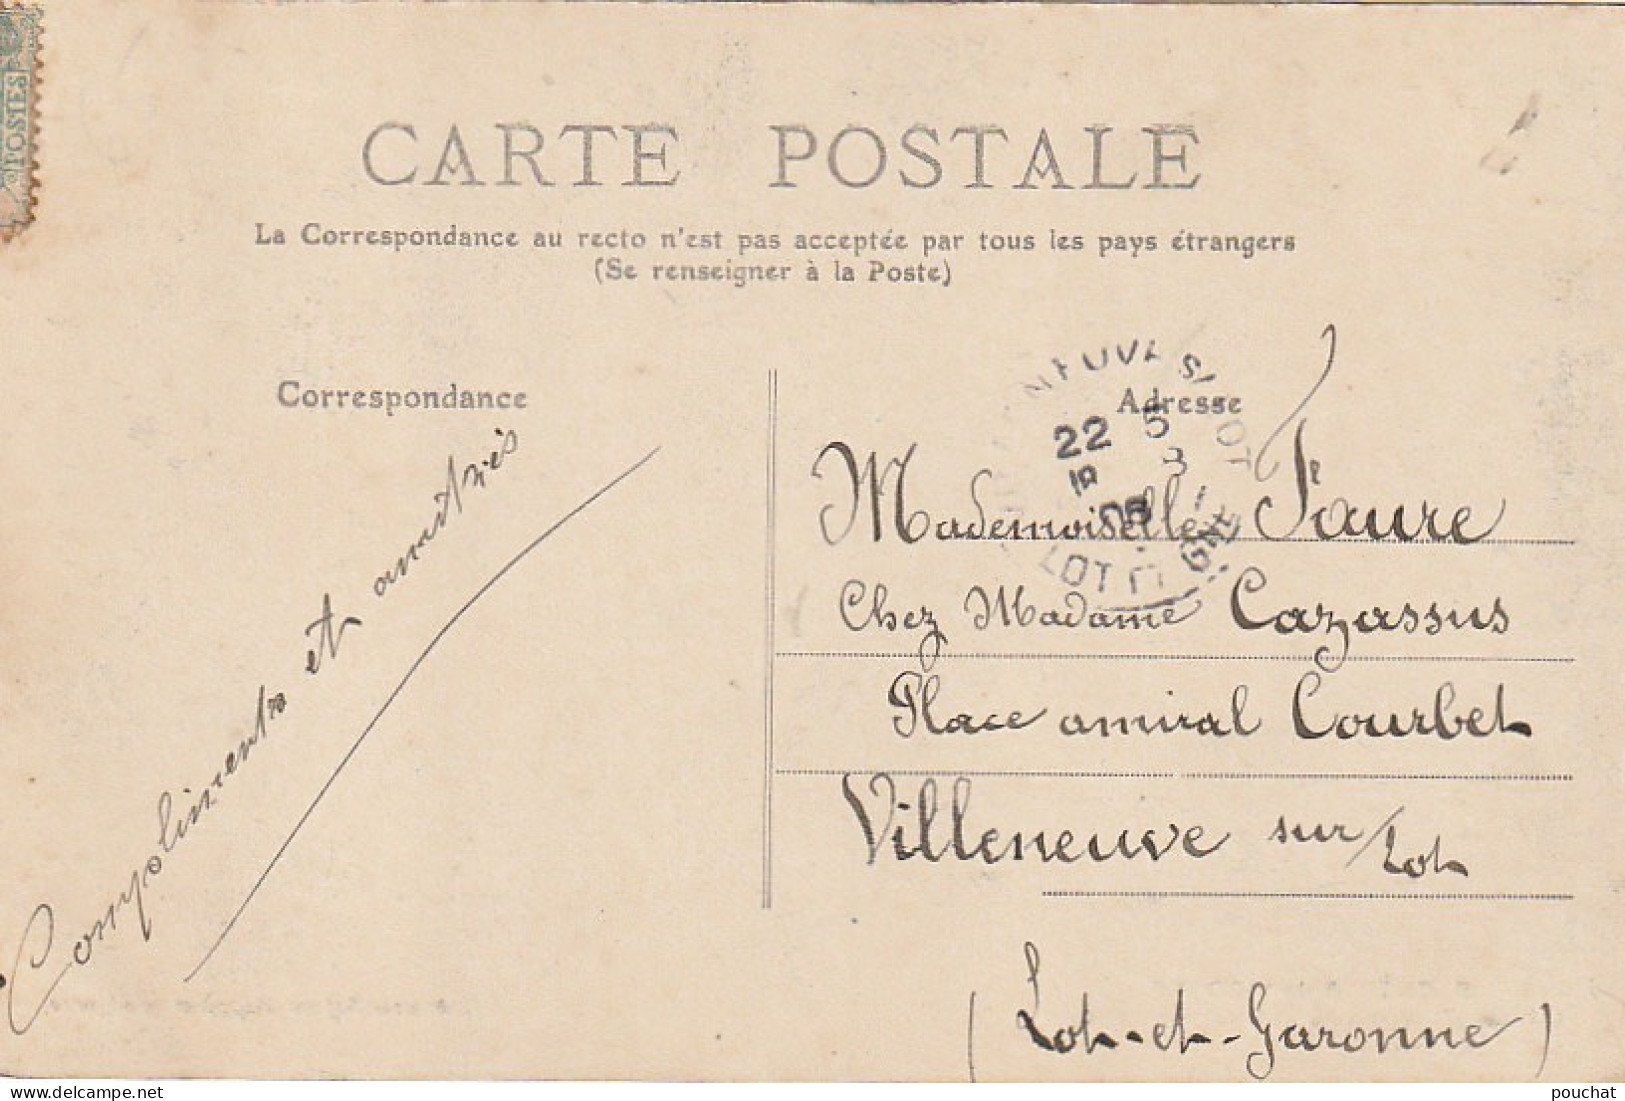 POSTES
CARTE POSTALE
La Correspondance au recto n'est pas acceptée par tous les pays étrangers
(Se renseigner à la Poste)
Correspondance
Adresse
Compliments et amitiés
22 5
LOT
Mademoiselle Faure
Chez Madame Cazassus
Place amiral Courbet
Villeneuve sur/Lot
(Lot-et-Garonne)
https://www.delcampe.net
pouchat